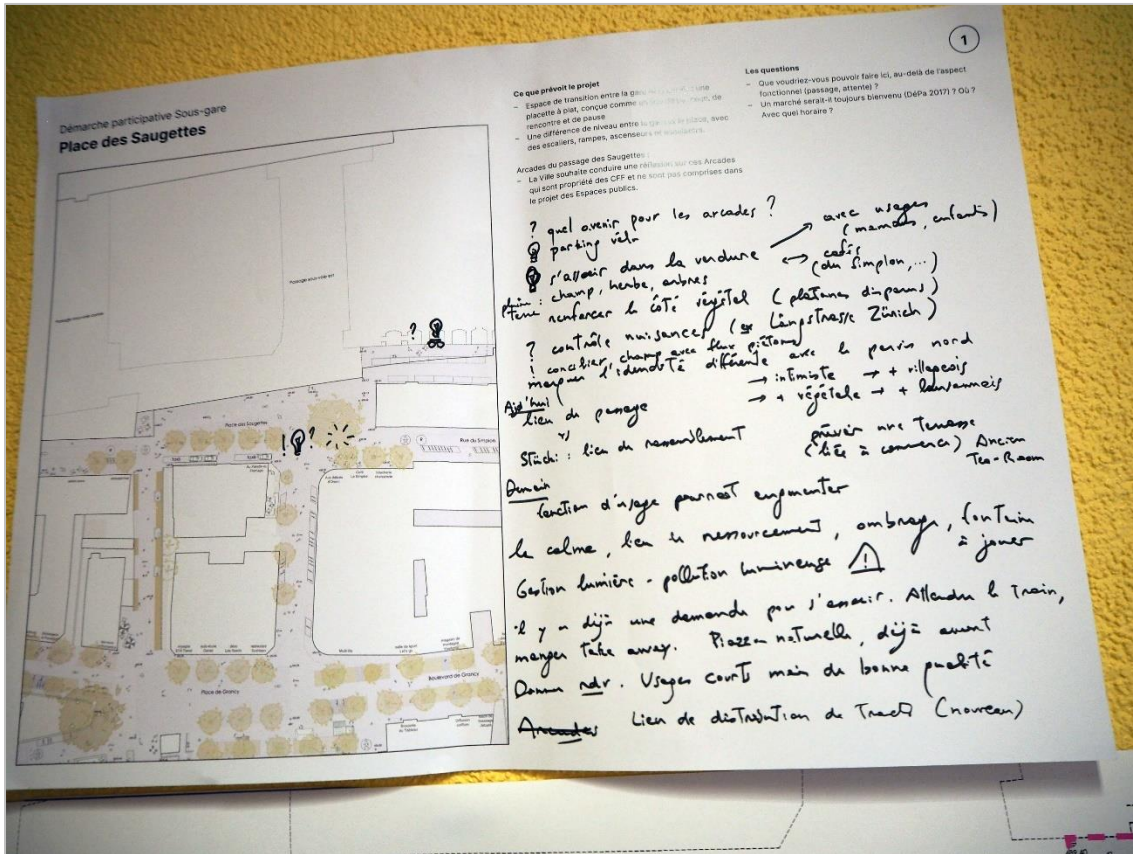 1
Démarche participative Sous-gare
Place des Saugettes
Ce que prévoit le projet
– Espace de transition entre la une
placette à plat, conçue comme de
rencontre et de pause
– Une différence de niveau entre la place, avec
des escaliers, rampes, ascenseurs et
Arcades du passage des Saugettes :
– La Ville souhaite conduire une réflexion sur ces Arcades
qui sont propriété des CFF et ne sont pas comprises dans
le projet des Espaces publics.
Les questions
– Que voudriez-vous pouvoir faire ici, au-delà de l'aspect
fonctionnel (passage, attente) ?
– Un marché serait-il toujours bienvenu (DéPa 2017) ? Où ?
Avec quel horaire ?
? quel avenir pour les arcades ?
parking vélo
s'asseoir dans la verdure
avec usages
(mamans, enfants)
cafés
(du Simplon, ...)
pleine terre : champ, herbe, arbres
renforcer le côté végétal (platanes disparus)
? contrôle nuisances (Längstrasse Zürich)
! concilier champ avec flux piétons
marquer l'identité différente avec le parvis nord
→ intimiste → + villageois
→ + végétale → + lausannois
Ajd'hui
lieu de passage
vs
Stüchi : lieu de rassemblement
prévoir une terrasse
(liée à commerce) Ancien
Tea-Room
Demain
fonction d'usage pourrait augmenter
le calme, lieu de ressourcement, ombrage, fontaine
à jouer
Gestion lumière - pollution lumineuse !
il y a déjà une demande pour s'asseoir. Attendre le train,
manger take away. Piazza naturelle, déjà avant
Donner rdv. Usages courts mais de bonne qualité
Arcades Lieu de distribution de Tracts (nouveau)
Passage sous-voies est
Place des Saugettes
Rue du Simplon
Place de Grancy
Boulevard de Grancy
? !
! ?